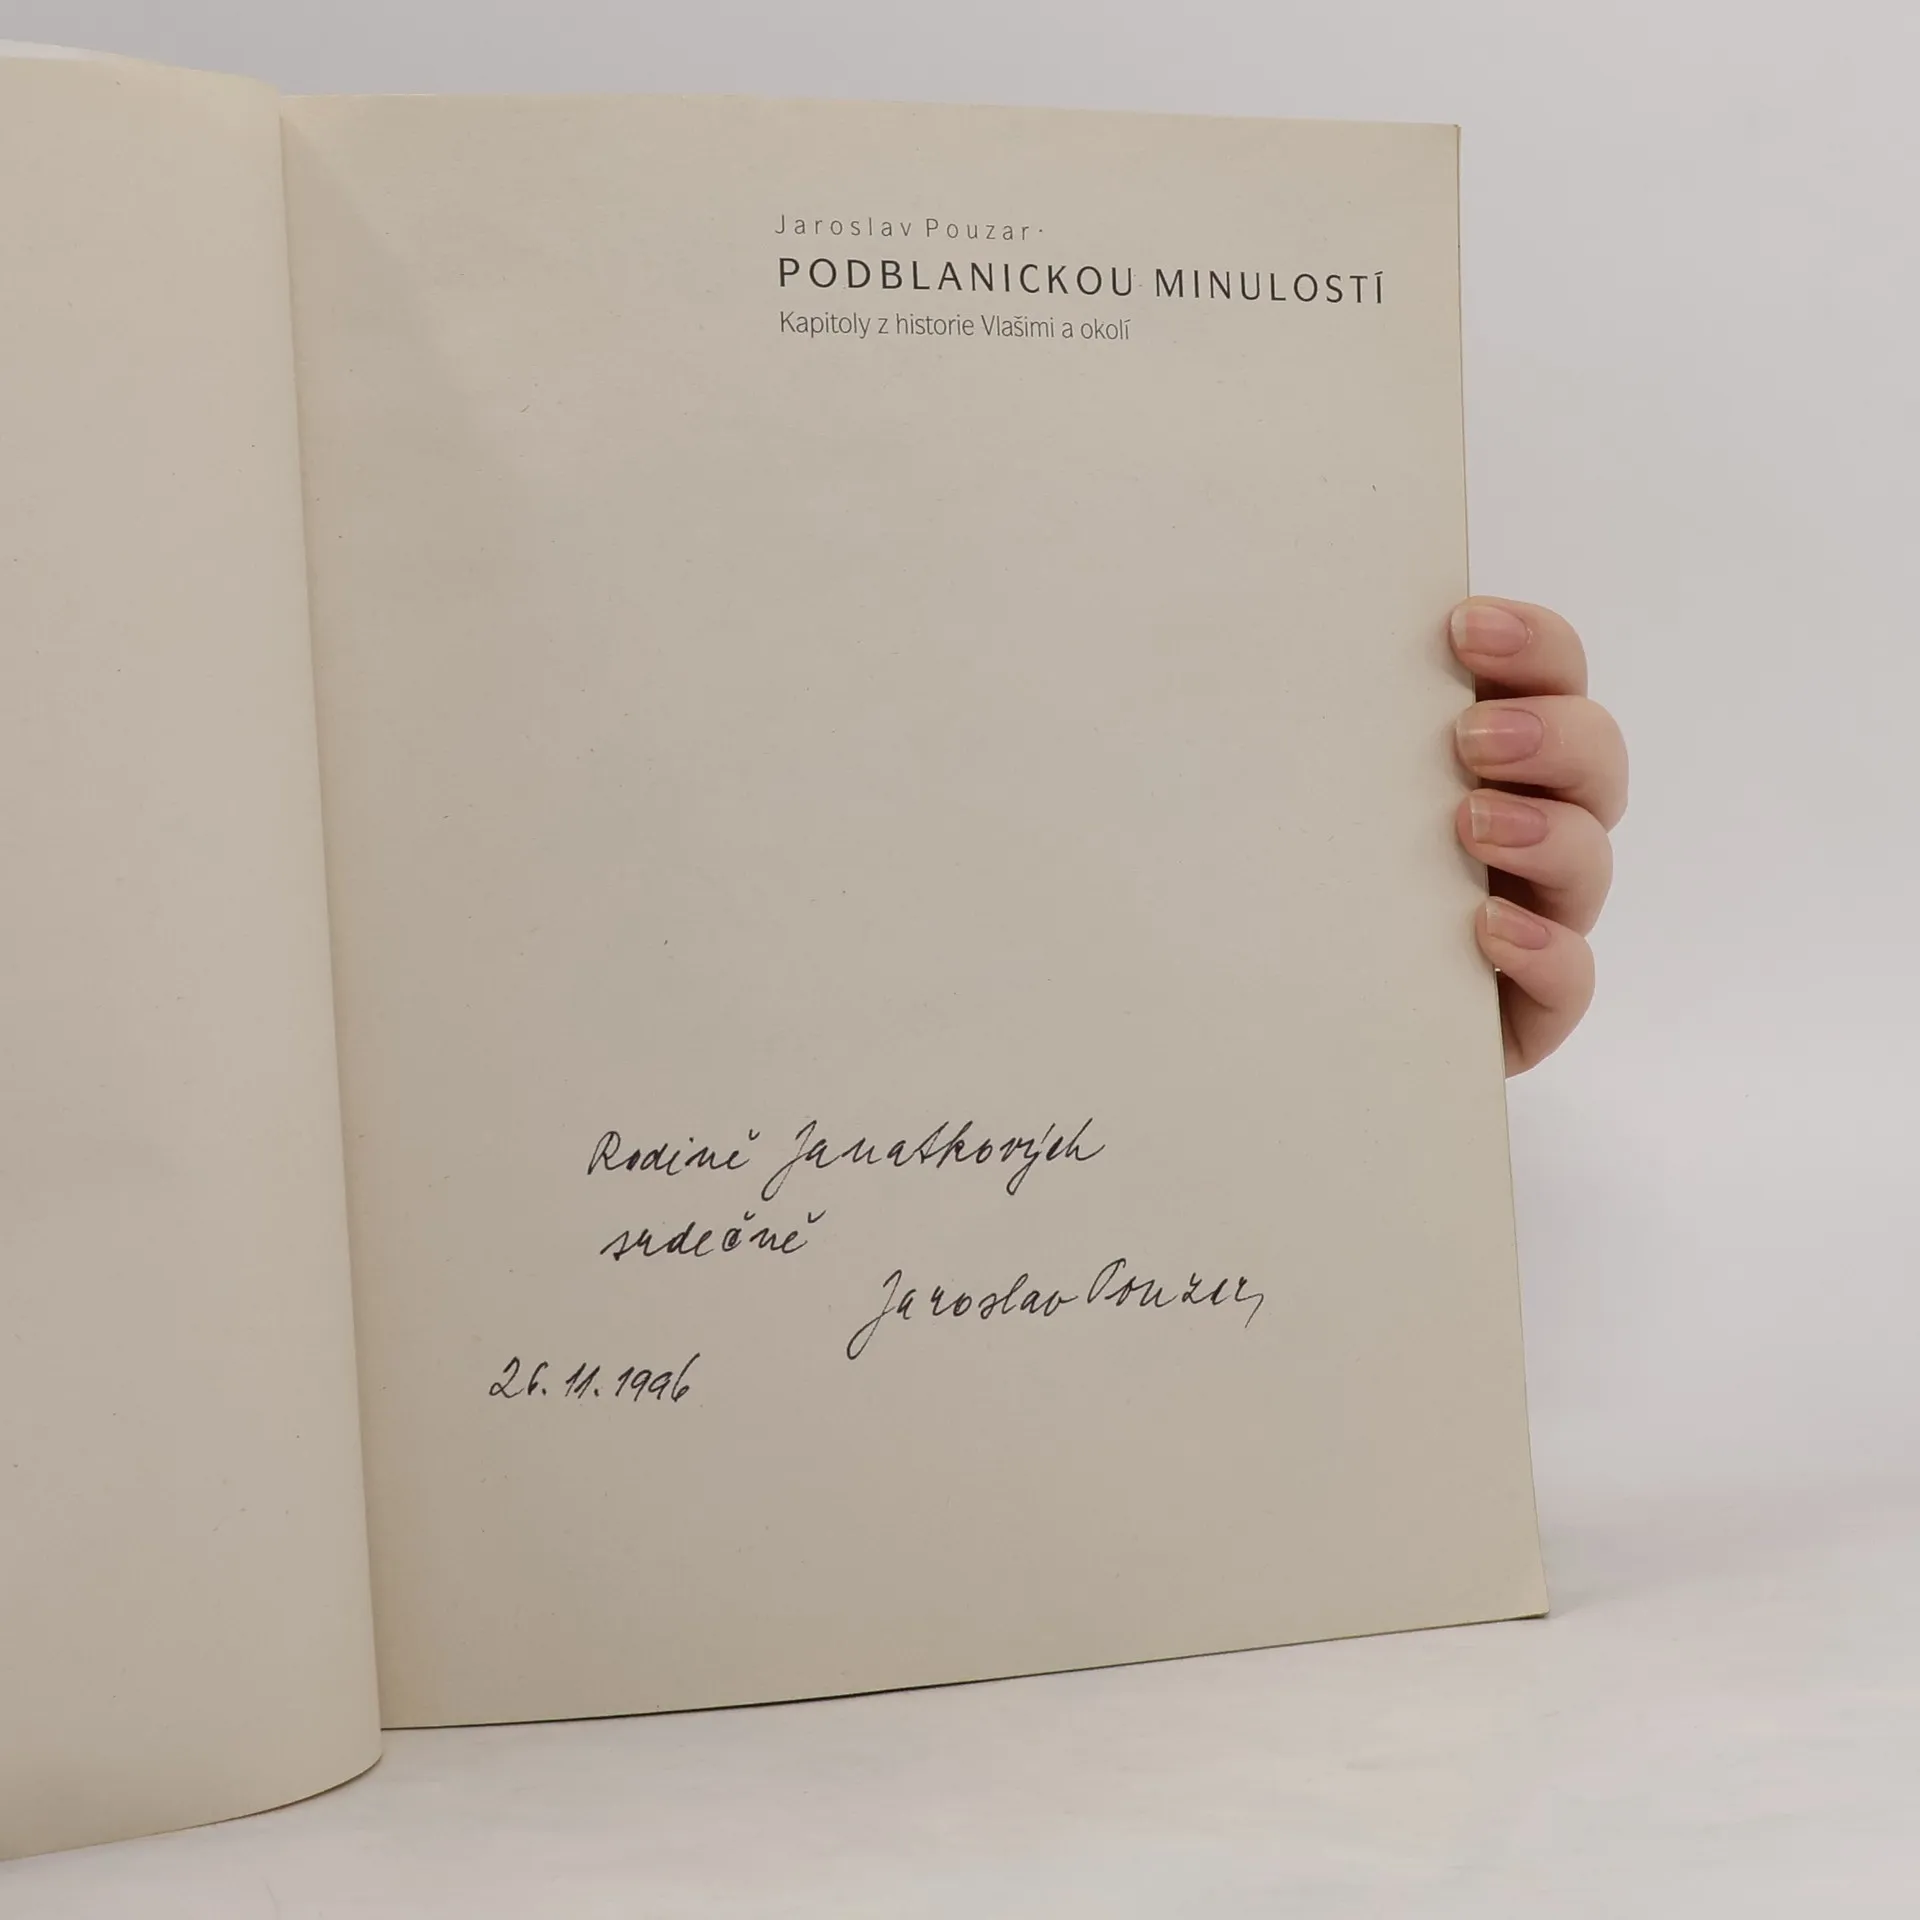 Jaroslav Pouzar
PODBLANICKOU MINULOSTÍ
Kapitoly z historie Vlašimi a okolí
Rodině Janatkových
srdečně
Jaroslav Pouzar
26. 11. 1996